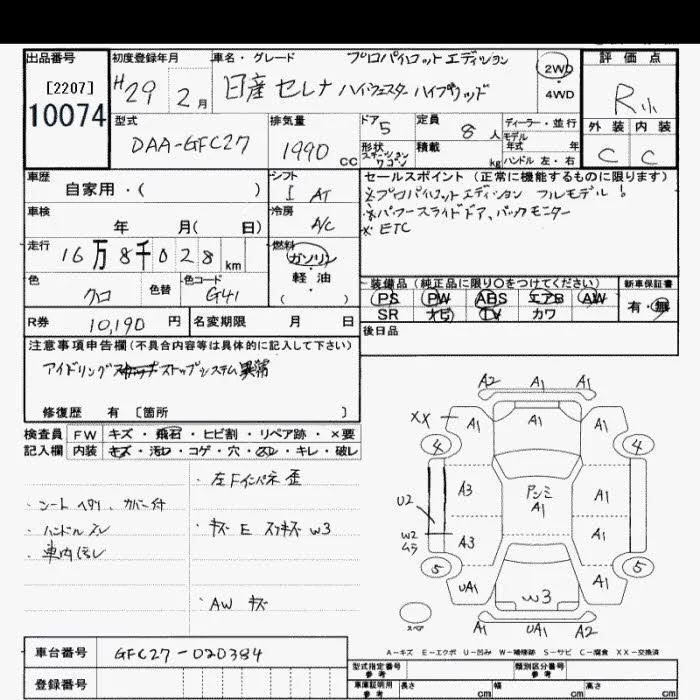 出品番号
[2207]
10074
初度登録年月
H29 2月
車名・グレード
プロパイロット エディション
日産 セレナ ハイウェスター ハイブリッド
2WD
・
4WD
評価点
R
外装 内装
C C
型式
DAA-GFC27
排気量
1990 cc
ドア
5
形状
ステーション
ワゴン
定員
8 人
積載
kg
ディーラー・並行
モデル
年式 年
ハンドル 左・右
車歴
自家用・( )
シフト
I AT
車検
年 月( 日)
冷房
A/C
走行
16万8千028 km
燃料
ガソリン
・
軽油
( )
色
クロ
色替
色コード
G41
R券 10,190 円
名変期限 月 日
セールスポイント (正常に機能するものに限ります)
※プロパイロット エディション フルモデル!
※パワースライドドア、バックモニター
※ETC
装備品 (純正品に限り○をつけてください)
PS PW ABS エアB AW
SR ナビ TV カワ
新車保証書
有・無
後日品
注意事項申告欄(不具合内容等は具体的に記入して下さい)
アイドリング ストップシステム 異常
修復歴 有 [箇所 ]
検査員
記入欄
FW キズ・飛石・ヒビ割・リペア跡・×要
内装 キズ・汚れ・コゲ・穴・スレ・キレ・破レ
・シート ヘタリ、カバー付
・ハンドル スレ
・車内汚レ
・左Fインパネ 歪
・キズ E スリキズ W3
・AW キズ
A2 A1 A1
XX A1 A1 A1
4 4
A3 アンミ A1 A1
U2
W2
ムラ
A3 A1
5 5
UA1 W3 A1
スペア
A1 UA1 A2
A-キズ E-エクボ U-凹み W-補修跡 S-サビ C-腐食 XX-交換済
車台番号 GFC27-020384
登録番号
型式指定番号
参考
類別区分番号
参考
車庫証明用
参考
長さ cm 幅 cm 高さ cm